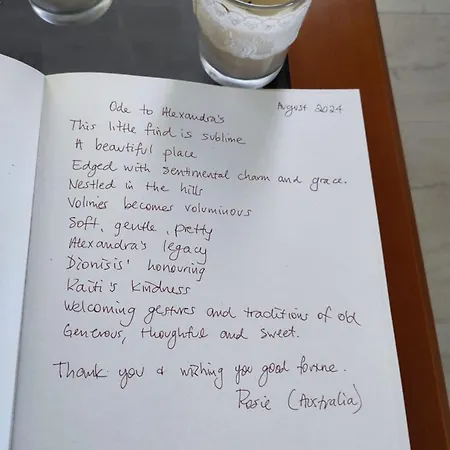 Ode to Alexandra's
August 2024
This little find is sublime
A beautiful place
Edged with sentimental charm and grace.
Nestled in the hills
Volimies becomes voluminous
Soft, gentle, pretty
Alexandra's legacy
Dionisis' honouring
Kaiti's kindness
Welcoming gestures and traditions of old
Generous, thoughtful and sweet.
Thank you & wishing you good fortune.
Rosie (Australia)